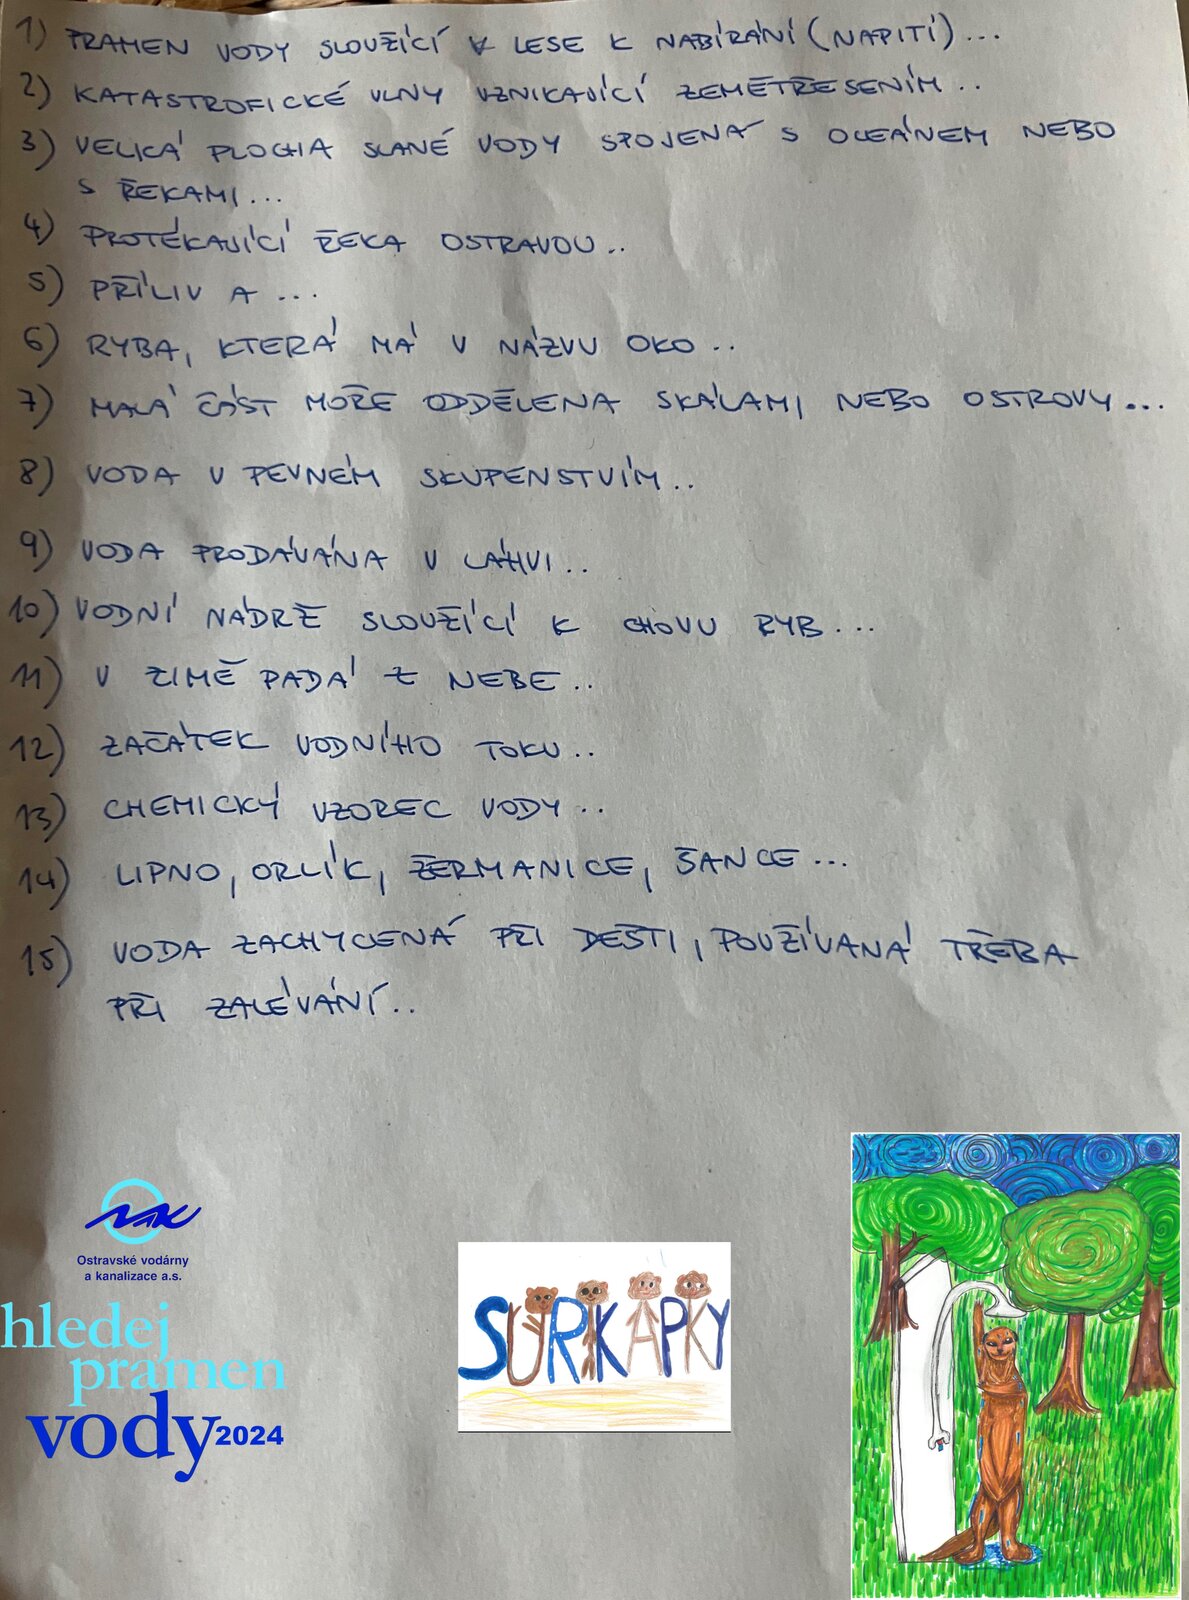 1) PRAMEN VODY SLOUŽÍCÍ V LESE K NABÍRÁNÍ (NAPITÍ)...
2) KATASTROFICKÉ VLNY VZNIKAJÍCÍ ZEMĚTŘESENÍM..
3) VELKÁ PLOCHA SLANÉ VODY SPOJENÁ S OCEÁNEM NEBO
S ŘEKAMI...
4) PROTÉKAJÍCÍ ŘEKA OSTRAVOU..
5) PŘÍLIV A ...
6) RYBA, KTERÁ MÁ V NÁZVU OKO..
7) MALÁ ČÁST MOŘE ODDĚLENA SKÁLAMI NEBO OSTROVY...
8) VODA V PEVNÉM SKUPENSTVÍM..
9) VODA PRODÁVÁNA V LÁHVI..
10) VODNÍ NÁDRŽ SLOUŽÍCÍ K CHOVU RYB...
11) V ZIMĚ PADÁ Z NEBE..
12) ZAČÁTEK VODNÍHO TOKU..
13) CHEMICKÝ VZOREC VODY..
14) LIPNO, ORLÍK, ŽERMANICE, ŠANCE...
15) VODA ZACHYCENÁ PŘI DEŠTI, POUŽÍVANÁ TŘEBA
PŘI ZALÉVÁNÍ..
Ostravské vodárny
a kanalizace a.s.
hledej
pramen
vody 2024
SURIKAPKY